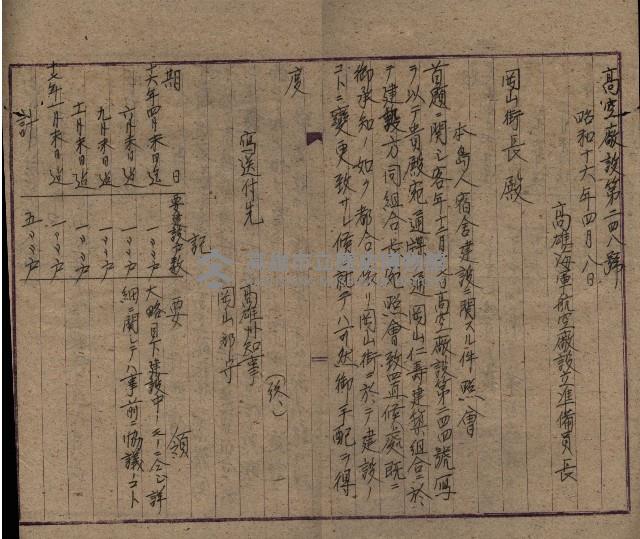 高空廠設第二四八號
昭和十六年四月八日
高雄海軍航空廠設立準備員長
岡山街長殿
本島人宿舍建設ニ關スル件照會
首題ニ關シ客年十二月 日高空廠設第二四四號寫
ヲ以テ貴殿宛通牒ノ通岡山仁壽建築組合ニ於
テ建設方同組合長宛照會致置候處既ニ
御承知ノ如ク都合ニ依リ岡山街ニ於テ建設ノ
コトニ變更致サレ候ニ就テハ可然御手配ヲ得
度
(終)
寫送付先
高雄州知事
岡山郡守
記
期日 要建設戶數 要領
十六年四月末日迄 一〇〇戶 大略目下建設中ノモノニ合シ詳
六月末日迄 一〇〇戶 細ニ關シテハ事前ニ協議ノコト
九月末日迄 一〇〇戶
十二月末日迄 一〇〇戶
十七年 月末日迄 一〇〇戶
計 五〇〇戶
高雄市立歷史博物館